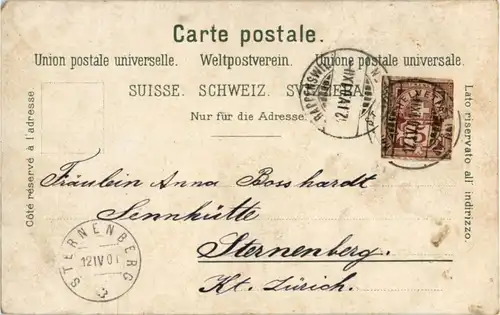 Carte postale.
Union postale universelle. Weltpostverein. Unione postale universale.
SUISSE. SCHWEIZ. SVIZZERA.
Nur für die Adresse.
Côté réservé à l'adresse
Lato riservato all' indirizzo.
RAPPERSWIL
5
Fräulein Anna Bosshardt
Sennhütte
Sternenberg.
Kt. Zürich.
STERNENBERG
12 IV 01